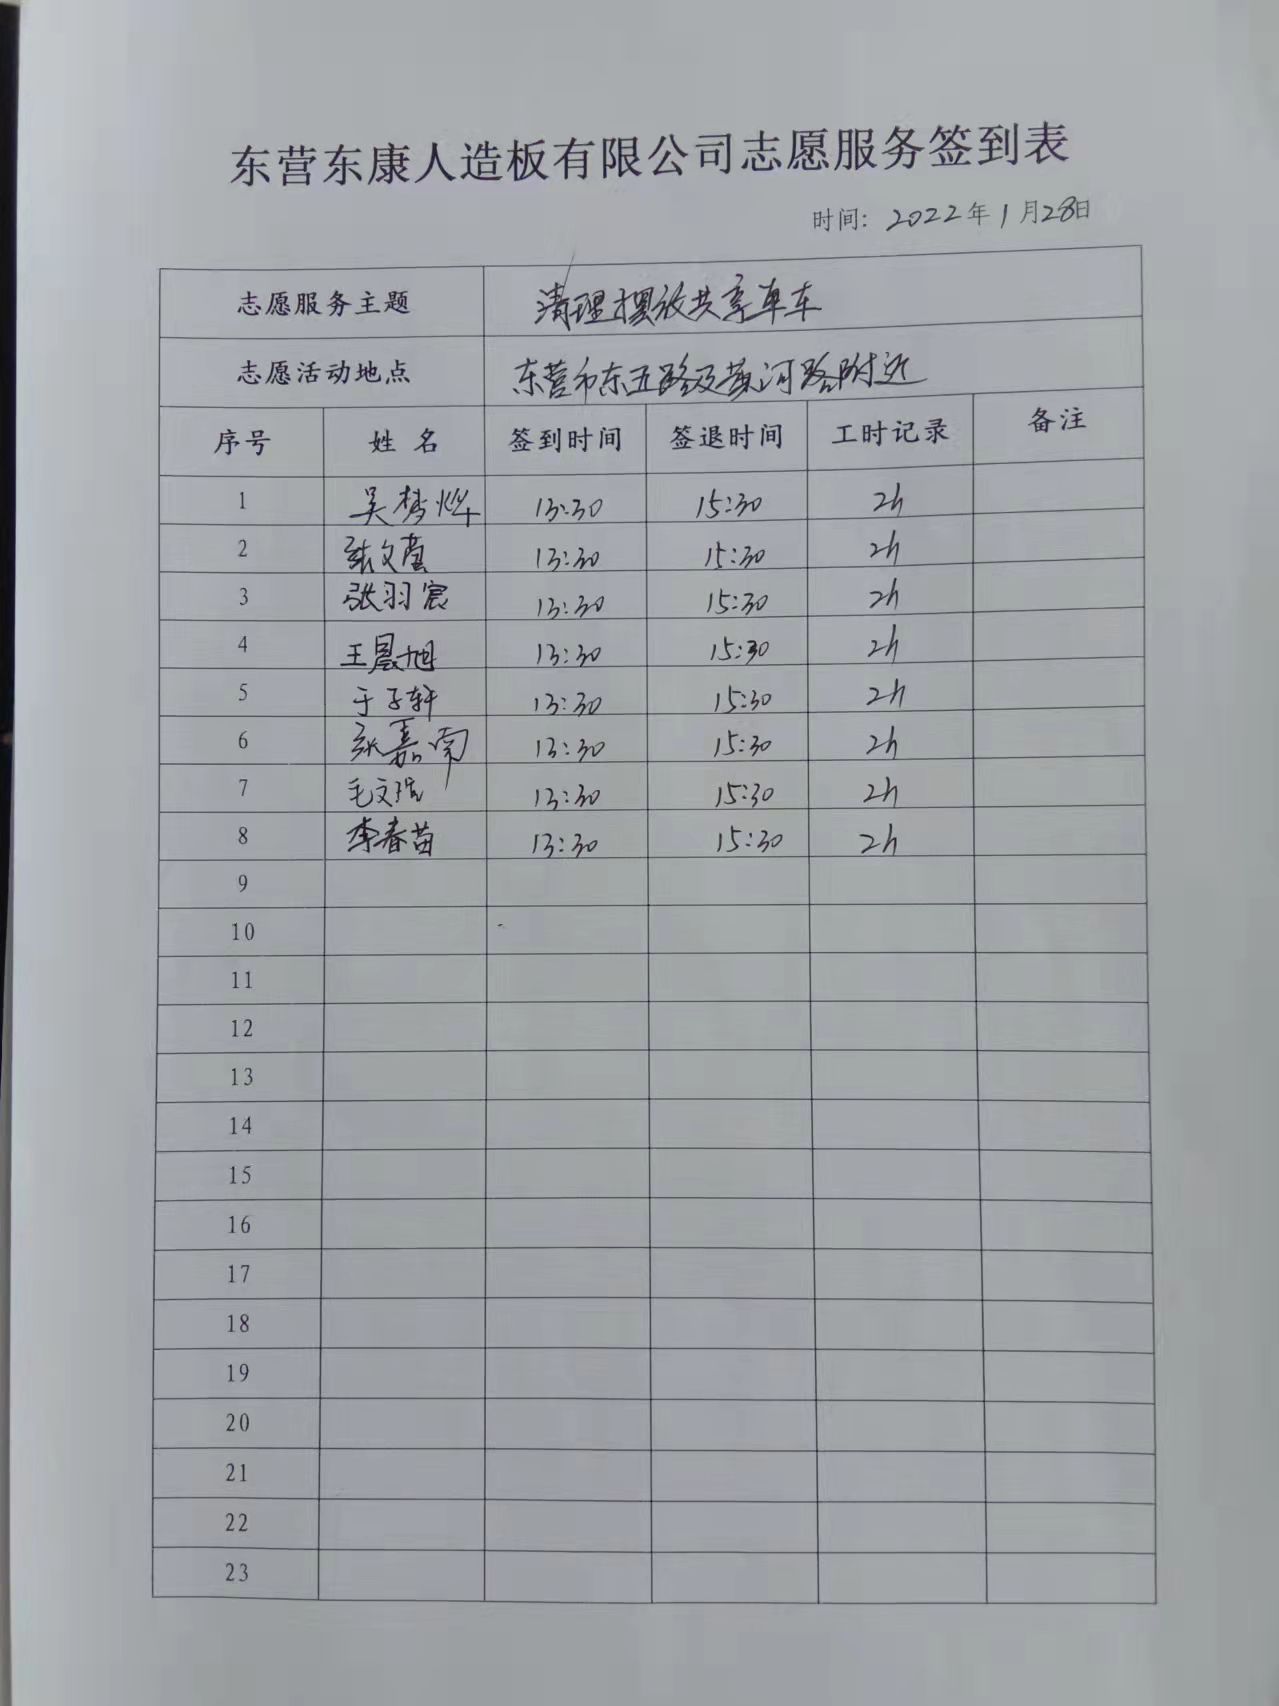 东营东康人造板有限公司志愿服务签到表
时间: 2022年1月28日
志愿服务主题 清理摆放共享单车
志愿活动地点 东营市东五路及黄河路附近
序号 姓名 签到时间 签退时间 工时记录 备注
1 吴梦烨 13:30 15:30 2h
2 张文萱 13:30 15:30 2h
3 张羽宸 13:30 15:30 2h
4 王晨旭 13:30 15:30 2h
5 于子轩 13:30 15:30 2h
6 张嘉 13:30 15:30 2h
7 毛文浩 13:30 15:30 2h
8 李春苗 13:30 15:30 2h
9
10
11
12
13
14
15
16
17
18
19
20
21
22
23